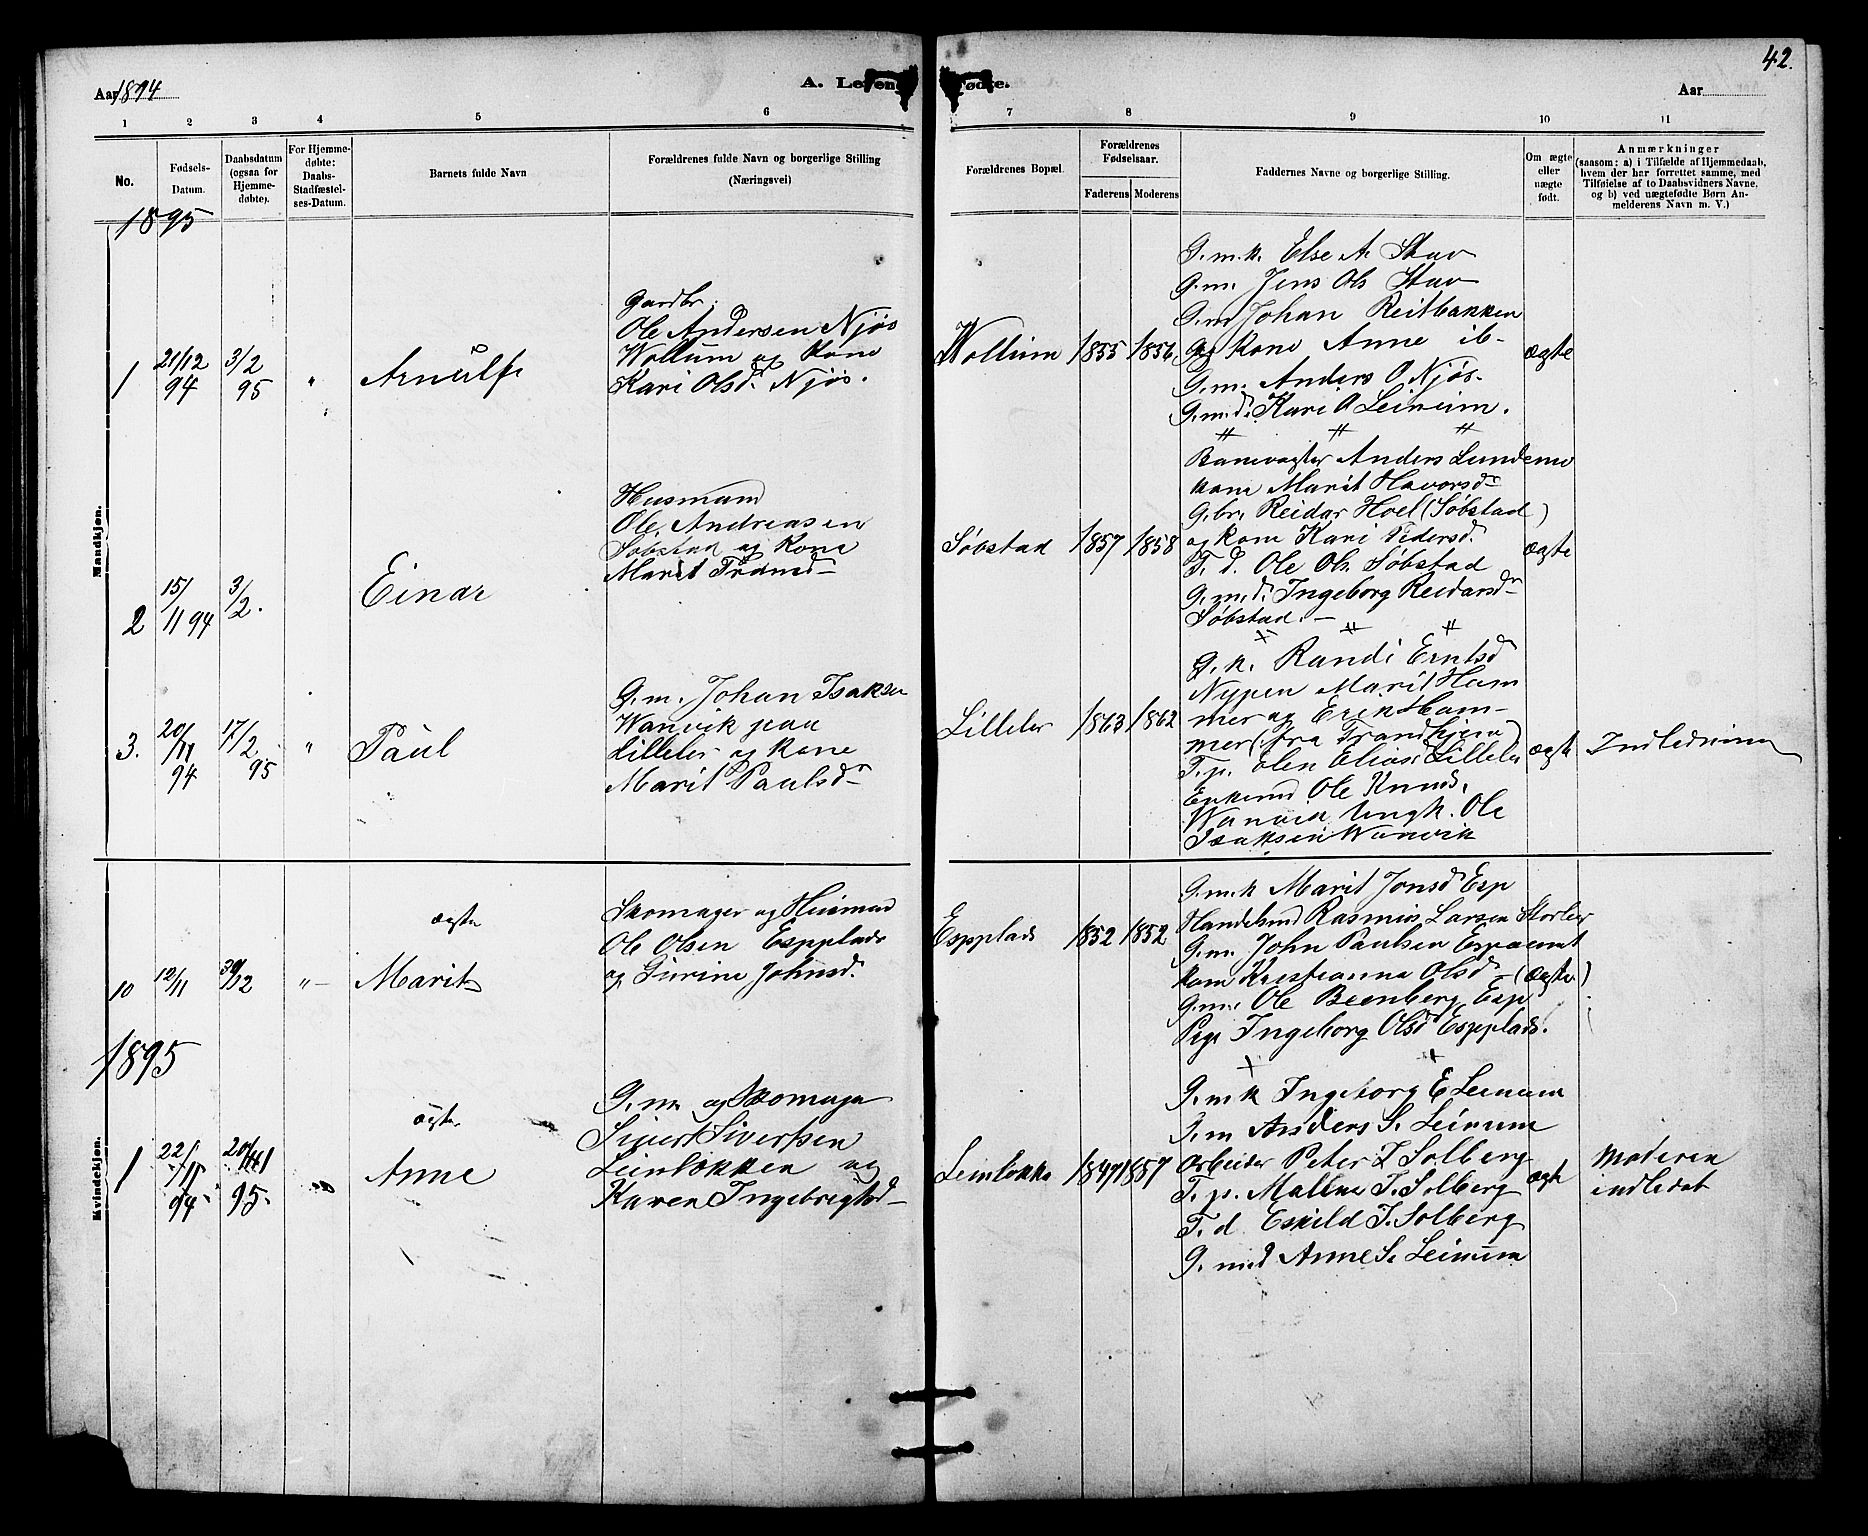 42.
Aar 1894
A. Leven
fødte.
Aar
1 2 3 4 5 6 7 8 9 10 11
No.
Fødsels-
Datum.
Daabsdatum
(ogsaa for
Hjemme-
døbte).
For Hjemme-
døbte:
Daabs-
Stadfæstel-
ses-Datum.
Barnets fulde Navn
Forældrenes fulde Navn og borgerlige Stilling
(Næringsvei)
Forældrenes Bopæl.
Forældrenes
Fødselsaar.
Faderens
Moderens
Faddernes Navne og borgerlige Stilling.
Om ægte
eller
uægte
født.
Anmærkninger
(saasom: a) i Tilfælde af Hjemmedaab,
hvem der har forrettet samme, med
Tilføielse af to Daabsvidners Navne,
og b) ved uægtefødte Børn An-
melderens Navn m. V.)
1895
Mandkjøn.
1
21/12
94
3/2
95
"
Arnulf
Gardbr.
Ole Andersen Njøs
Wollum og Kone
Kari Olsd. Njøs.
Wollum
1855
1856
G.m.k. Else A. Stav
G.m. Jens Ols Stav
G.m Johan Reitbakken
og Kone Anne ib-
G.m. Anders O Njøs-
G.m.d. Kari A Leinum.
ægte
2
15/
11 94
3/
2.
Einar
Husmand
Ole Andreasen
Søbstad og Kone
Marit
Søbstad
1857
1858
Banevogter Anders Lundemo
Kone Marit Havorsd
G.br. Reidar Hoel (Søbstad)
og Kone Kari Pedersd.
T. d. Ole Ols. Søbstad
G.m.d. Ingeborg Reidarsd
Søbstad. -
ægte
3.
20/
11
94
17/2
95
"
Paul
G.m. Johan Isaksen
Wanvik paa
Lilleler og Kone
Marit Paulsd
Lilleler
1863
1862
G.k. Randi Erntsd
Nypen Marit Ham
mer og Erik Ham-
mer (fra Trondhjem)
T.p. Olen Eliasd Lilleler
Enkemd Ole Knuds.
Wanvik Ungk. Ole
Isaksen Wanvik
ægte
Indledning
10
12/11
30/12
"
ægte
Marit
Skomager og Husmand
Ole Olsen Espplads
og Gurine Johnsd.
Espplads
1852
1852
G.m.k Marit Jonsd Esp
Handelsmd Rasmus Larsen Storler
G.m. John Paulsen Esp
Kone Kristianna Olsd (ægte)
G.m. Ole Beenberg Esp
Pge Ingeborg Olsd Espplads.
1895
Kvindekjøn.
1
22/
11
94
95.
ægte
Anne
G.m. og Skomager
Sivert Siversen
Leinløkken og
Karen Ingebrigtsd
Leinløkke
1847
1857
G.m.k Ingeborg E Leinum
G.m Anders S. Leinum
Arbeider Peter J Solberg
T. p. Malene J. Solberg
T. d Eskild J. Solberg
G. md Anne S. Leinum
ægte
Moderen
indledet